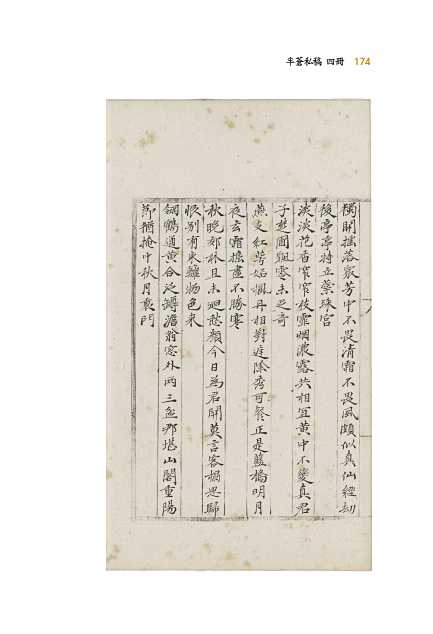 半蒼私稿 四冊 174
獨開搖落眾芳中不畏清霜不畏風頗似真仙經劫
後亭亭特立蘂珠宮
淡淡花香窄窄枝霏烟濃露共相宜黃中不變真君
子楚圃飄零未足奇
燕支紅萼如楓丹相對庭除秀可餐正是藍橋明月
夜玄霜搗盡不勝寒
秋晚郊林且未廻愁顏今日為君開莫言客榻思歸
恨別有東籬物色來
黃合泛罇澹翁窓外兩三盆那堪山閣重陽
節獨掩中秋月裏門